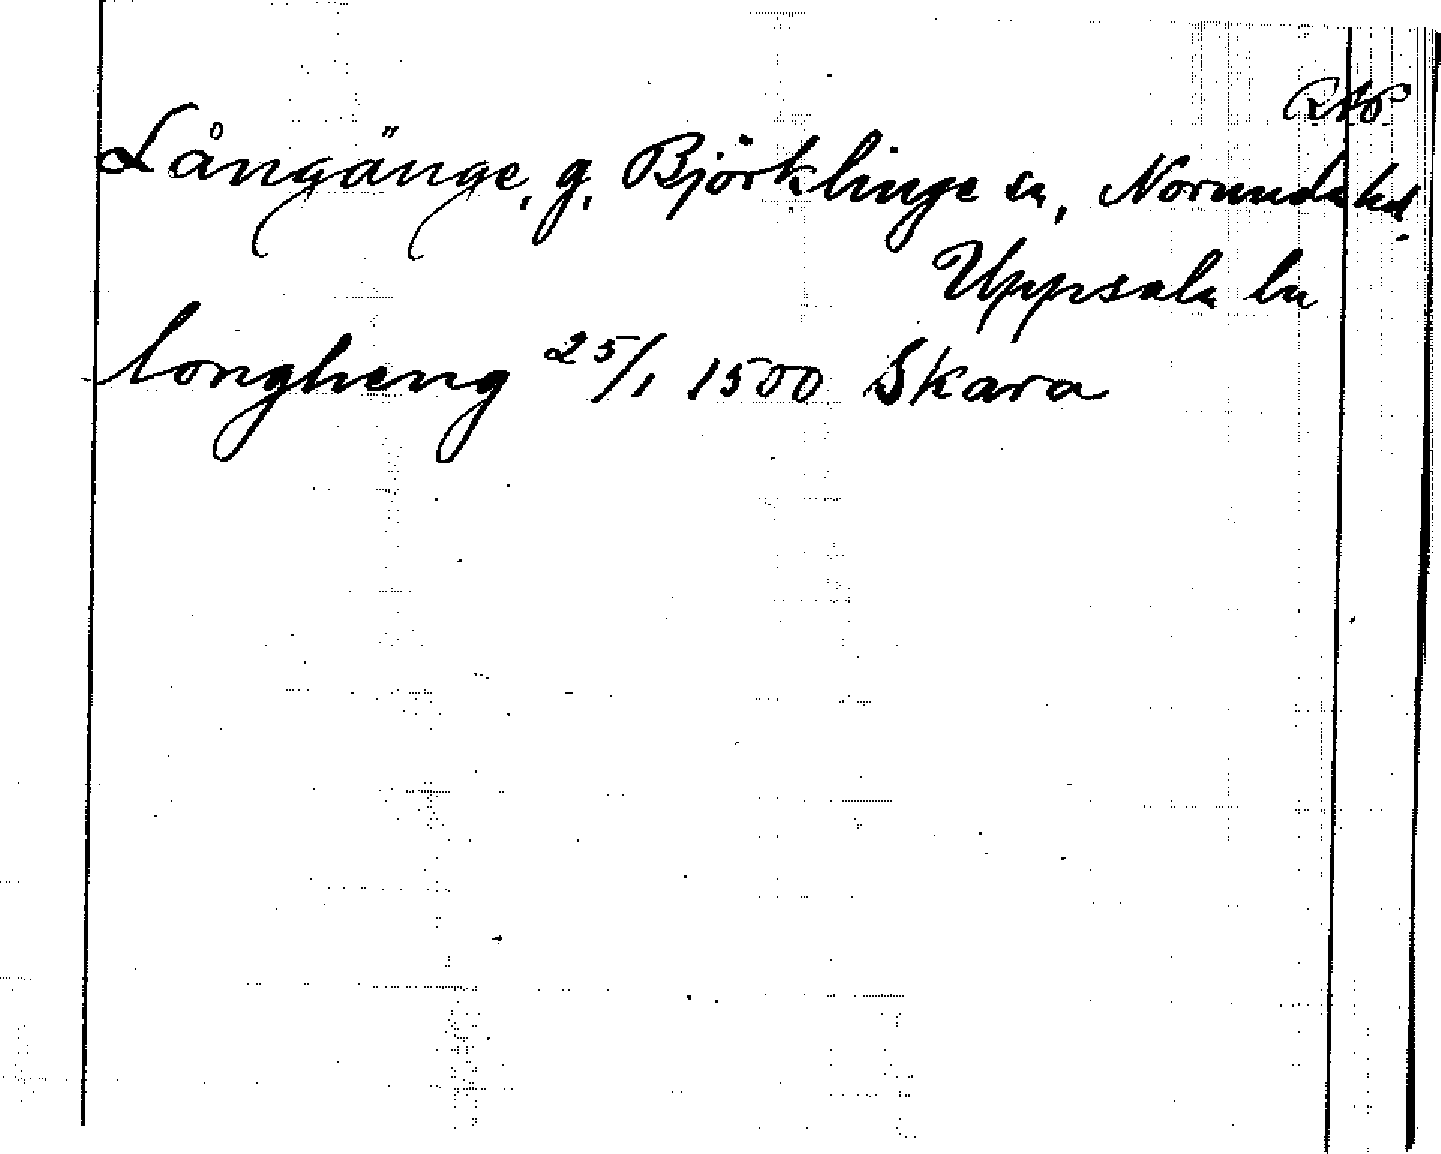 RAP.
Långänge, g. Björklinge sn, Norunda hd.
Uppsala ln
longheng 25/1 1500 Skara